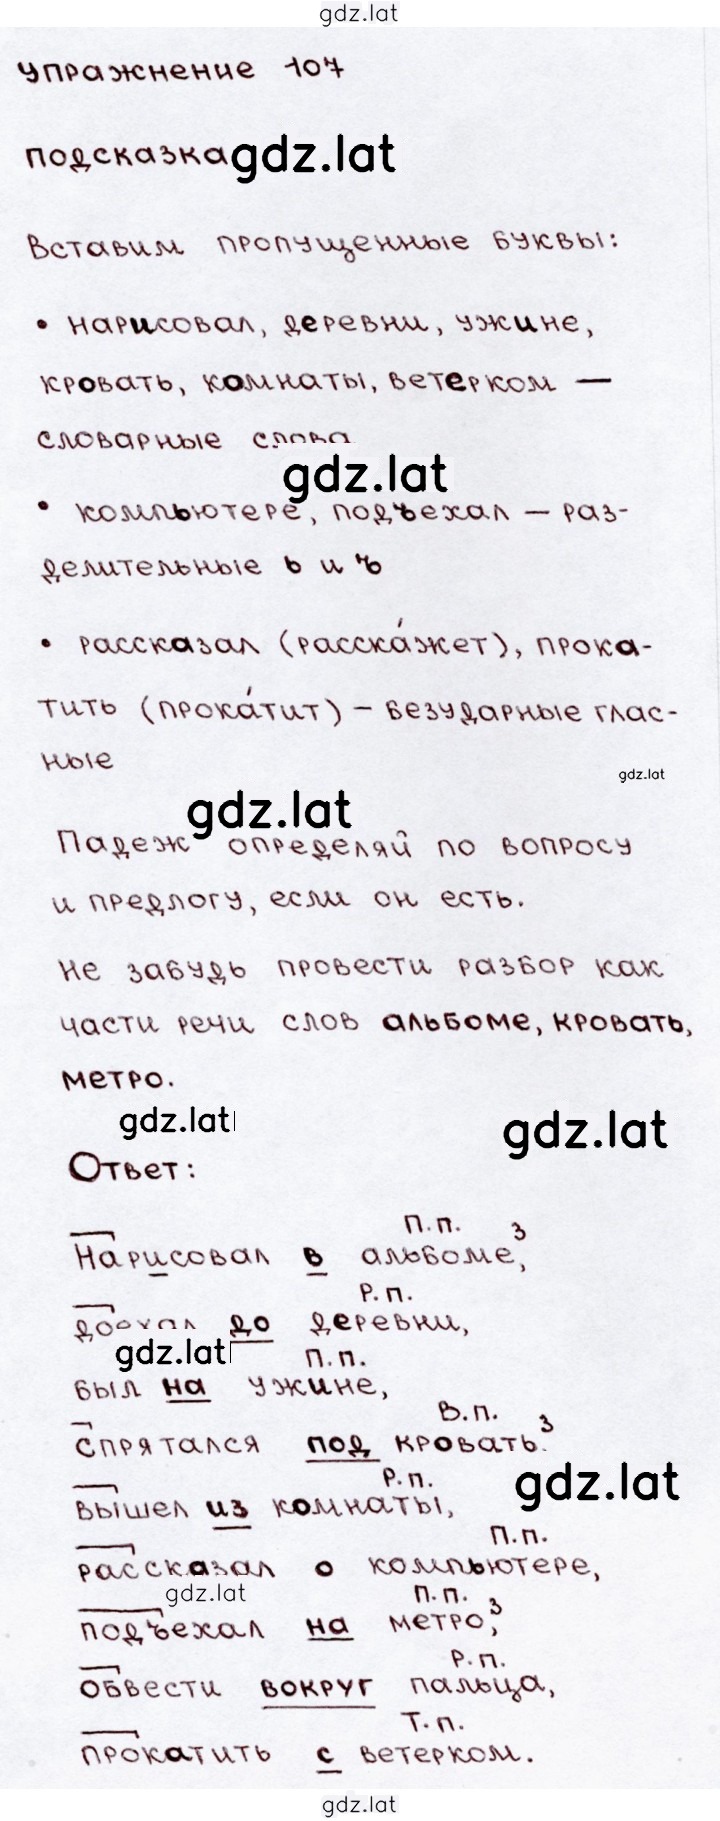 gdz.lat
Упражнение 107
подсказка gdz.lat
Вставим пропущенные буквы:
• нарисовал, деревни, ужине,
кровать, комнаты, ветерком —
словарные слова
gdz.lat
• компьютере, подъехал – раз-
делительные ь и ъ
• рассказал (расска́жет), прока-
тить (прока́тит) – безударные глас-
ные
gdz.lat
gdz.lat
Падеж определяй по вопросу
и предлогу, если он есть.
Не забудь провести разбор как
части речи слов альбоме, кровать,
метро.
gdz.lat
gdz.lat
Ответ:
П.п. 3
Нарисовал в альбоме,
Р.п.
доехал до деревни,
gdz.lat
П.п.
был на ужине,
В.п. 3
спрятался под кровать.
gdz.lat
Р.п.
вышел из комнаты,
П.п.
рассказал о компьютере,
gdz.lat
П.п. 3
подъехал на метро,
Р.п.
обвести вокруг пальца,
Т.п.
прокатить с ветерком.
gdz.lat